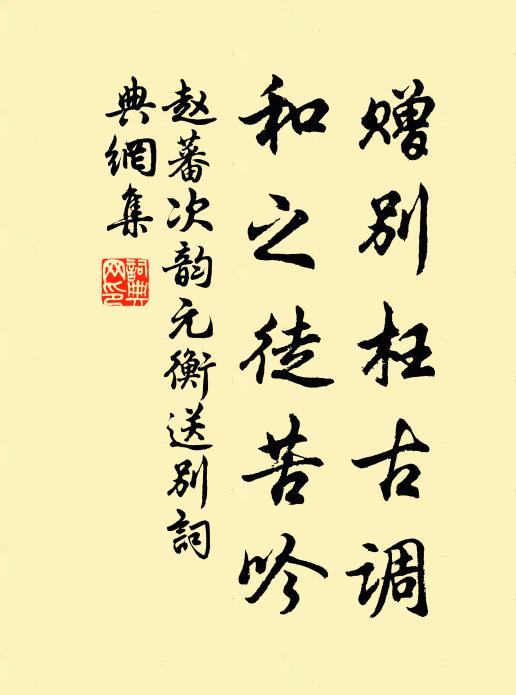 赠别枉古调
和之徒苦吟
赵蕃次韵元衡送别詞
典網集
詞典
网印